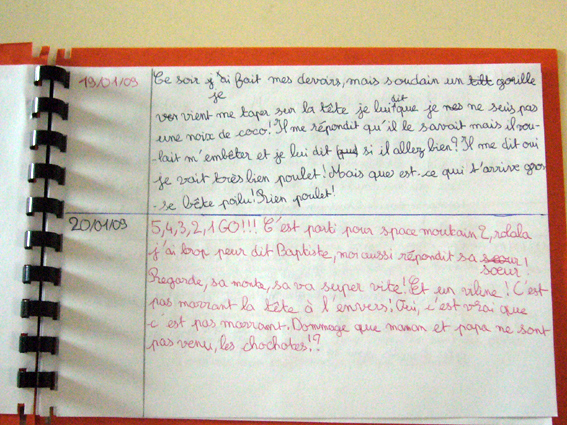 19/01/09
Ce soir j'ai fait mes devoirs, mais soudain un gorille
je
vient me taper sur la tête je lui dit que je ne suis pas
une noix de coco! Il me répondit qu'il le savait mais il vou-
-lait m'embêter et je lui dit si il allez bien? Il me dit oui
je vait très bien poulet! Mais que est-ce qui t'arrive gros-
-se bête poilu! Rien poulet!
20/01/09
5,4,3,2,1 GO!!! C'est parti pour space moutain 2, rolala
j'ai trop peur dit Baptiste, moi aussi répondit sa soeur!
Regarde, sa monte, sa va super vite! Et un vilne! C'est
pas marrant la tête à l'envers! Oui, c'est vrai que
c'est pas marrant. Dommage que maman et papa ne sont
pas venu, les chochotes!?